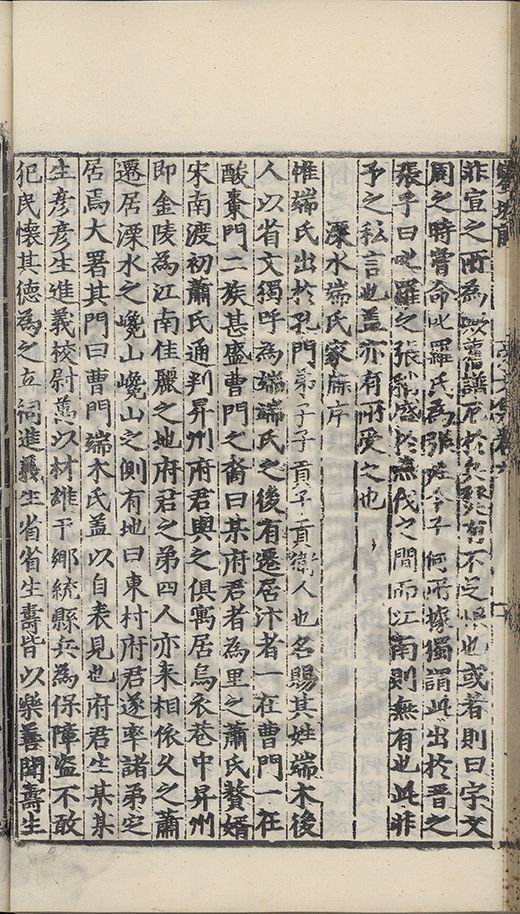 非宣之所為以舊譜不足於矣其不足也或者則曰宇文
周之時嘗命此羅氏為張姓今子何所據獨謂此出於晋之
張乎曰叱羅之張盛於燕代之間而江南則無有也此非
予之私言也蓋亦有所受之也
溧水端氏家牒序
惟端氏出於孔門弟子子貢子貢衛人也名賜其姓端木後
人以省文獨呼為端端氏之後有遷居汴者一在曹門一在
酸棗門二族甚盛曹門之裔曰某府君者為里之蕭氏贅婿
宋南渡初蕭氏通判昇州府君與之俱寓居烏衣巷中昇州
即金陵為江南佳麗之地府君之弟四人亦来相依久之蕭
遷居溧水之巉山巉山之側有地曰東村府君遂率諸弟定
居焉大署其門曰曹門端木氏蓋以自表見也府君生某某
生彦彦生進義校尉萬以材雄于鄉統縣兵為保障盗不敢
犯民懷其德為之立祠進義生省省生壽皆以樂善聞壽生